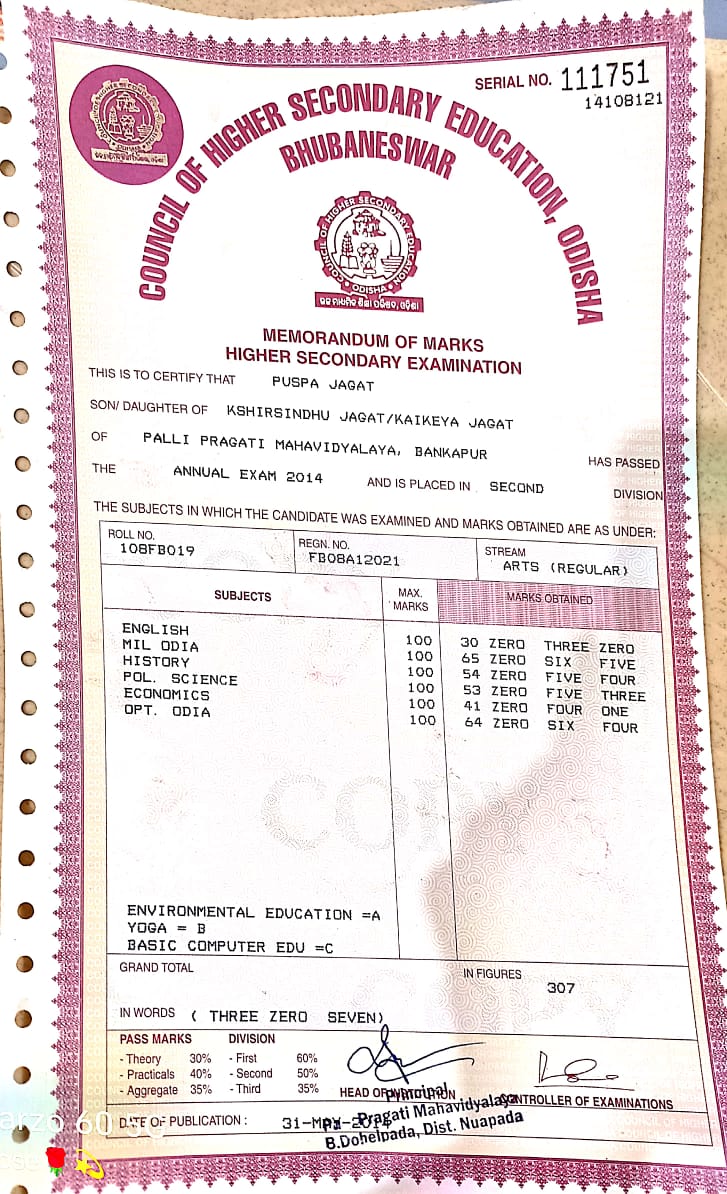 SERIAL NO. 111751
14108121
COUNCIL OF HIGHER SECONDARY EDUCATION, ODISHA
BHUBANESWAR
COUNCIL OF HIGHER SECONDARY EDUCATION
ODISHA
ଉଚ୍ଚ ମାଧ୍ୟମିକ ଶିକ୍ଷା ପରିଷଦ, ଓଡ଼ିଶା
MEMORANDUM OF MARKS
HIGHER SECONDARY EXAMINATION
THIS IS TO CERTIFY THAT PUSPA JAGAT
SON/ DAUGHTER OF KSHIRSINDHU JAGAT/KAIKEYA JAGAT
OF PALLI PRAGATI MAHAVIDYALAYA, BANKAPUR
HAS PASSED
THE ANNUAL EXAM 2014 AND IS PLACED IN SECOND DIVISION
THE SUBJECTS IN WHICH THE CANDIDATE WAS EXAMINED AND MARKS OBTAINED ARE AS UNDER:
ROLL NO. 108FB019 REGN. NO. FB08A12021 STREAM ARTS (REGULAR)
SUBJECTS MAX. MARKS MARKS OBTAINED
ENGLISH 100 30 ZERO THREE ZERO
MIL ODIA 100 65 ZERO SIX FIVE
HISTORY 100 54 ZERO FIVE FOUR
POL. SCIENCE 100 53 ZERO FIVE THREE
ECONOMICS 100 41 ZERO FOUR ONE
OPT. ODIA 100 64 ZERO SIX FOUR
COPY
ENVIRONMENTAL EDUCATION =A
YOGA = B
BASIC COMPUTER EDU =C
GRAND TOTAL IN FIGURES 307
IN WORDS ( THREE ZERO SEVEN)
PASS MARKS DIVISION
- Theory 30% - First 60%
- Practicals 40% - Second 50%
- Aggregate 35% - Third 35%
HEAD OF INSTITUTION CONTROLLER OF EXAMINATIONS
Principal
Pragati Mahavidyalaya
B.Dohelpada, Dist. Nuapada
DATE OF PUBLICATION : 31-MAY-2014
arzo 60 5G